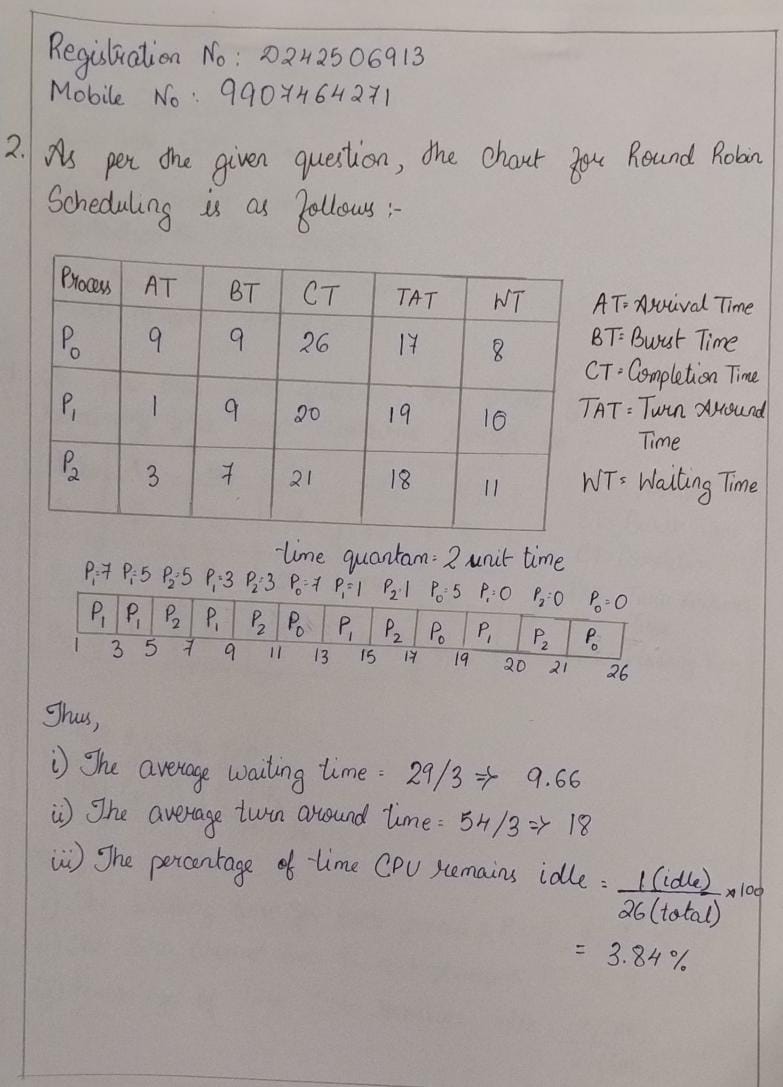 Registration No : D242506913
Mobile No : 9907464271
2. As per the given question, the chart for Round Robin
Scheduling is as follows :-
Process AT BT CT TAT WT
P0 9 9 26 17 8
P1 1 9 20 19 10
P2 3 7 21 18 11
AT= Arrival Time
BT= Burst Time
CT= Completion Time
TAT = Turn Around
Time
WT= Waiting Time
time quantam = 2 unit time
P1=7 P1=5 P2=5 P1=3 P2=3 P0=7 P1=1 P2=1 P0=5 P1=0 P2=0 P0=0
P1 P1 P2 P1 P2 P0 P1 P2 P0 P1 P2 P0
1 3 5 7 9 11 13 15 17 19 20 21 26
Thus,
i) The average waiting time = 29/3 => 9.66
ii) The average turn around time = 54/3 => 18
iii) The percentage of time CPU remains idle = 1 (idle) / 26 (total) × 100
= 3.84 %